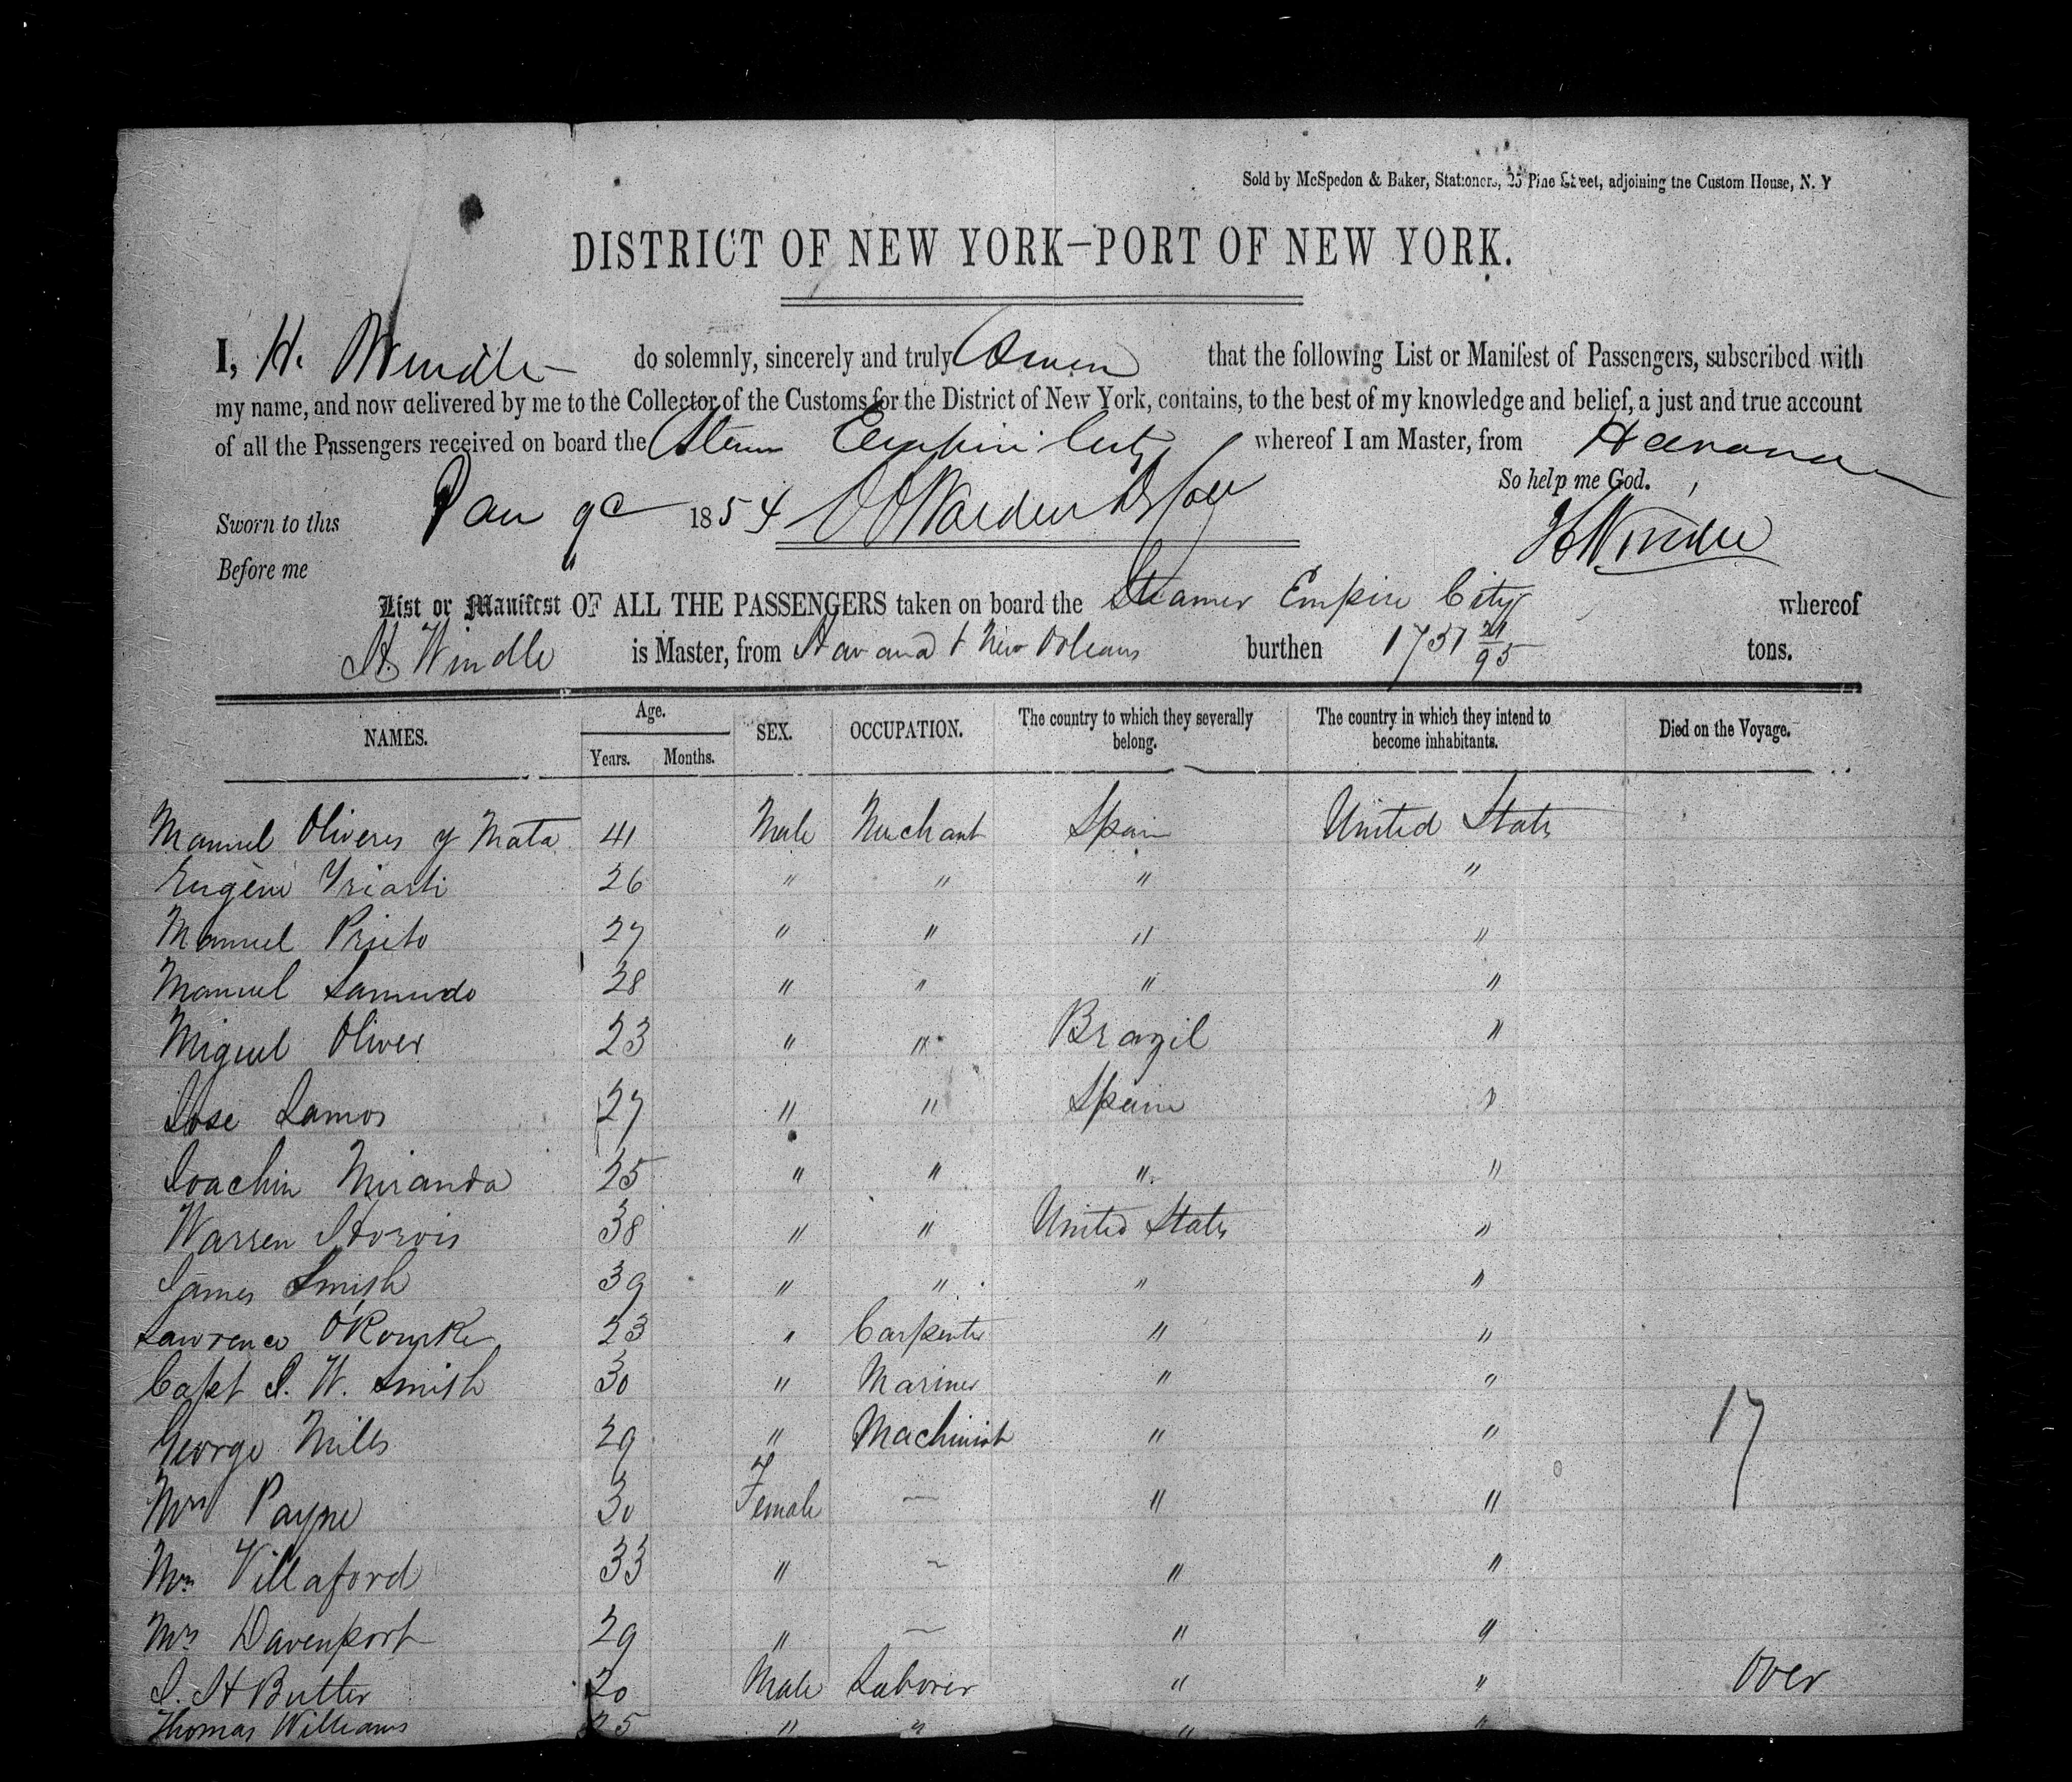 Sold by McSpedon & Baker, Stationers, 25 Pine Street, adjoining the Custom House, N. Y
DISTRICT OF NEW YORK—PORT OF NEW YORK.
I, H. Windle do solemnly, sincerely and truly Swear that the following List or Manifest of Passengers, subscribed with
my name, and now delivered by me to the Collector of the Customs for the District of New York, contains, to the best of my knowledge and belief, a just and true account
of all the Passengers received on board the Steam Empire City whereof I am Master, from Havana
So help me God.
Sworn to this Jan 9 1854
H Windle
Before me
List or Manifest OF ALL THE PASSENGERS taken on board the Steamer Empire City whereof
H. Windle is Master, from Havana & New Orleans burthen 1751 21/95 tons.
NAMES. Age. Years. Months. SEX. OCCUPATION. The country to which they severally belong. The country in which they intend to become inhabitants. Died on the Voyage.
Manuel Oliveres y Mata 41 Male Merchant Spain United States
Eugene Yriarti 26 " " " "
Manuel Prieto 27 " " " "
Manuel Samudo 28 " " " "
Miguel Oliver 23 " " Brazil "
Jose Lamos 27 " " Spain "
Joachin Miranda 25 " " " "
Warren 38 " " United States "
James Smish 39 " " " "
Lawrence O'Rourke 23 " Carpenter " "
Capt J. W. Smish 30 " Mariner " "
George Mills 29 " Machinist " " 17
Mrs Payne 30 Female — " "
Mrs Villaford 33 " — " "
Mrs Davenport 29 " — " "
J. H Butler 20 Male Laborer " " Over
Thomas Williams 25 " " " "